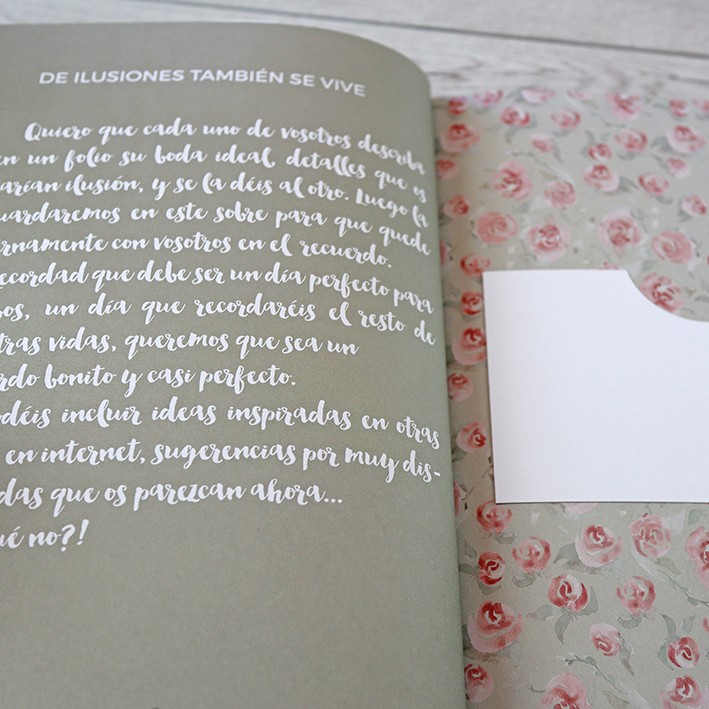 DE ILUSIONES TAMBIÉN SE VIVE
Quiero que cada uno de vosotros describa
en un folio su boda ideal, detalles que os
arían ilusión, y se la déis al otro. Luego la
uardaremos en este sobre para que quede
ernamente con vosotros en el recuerdo.
ecordad que debe ser un día perfecto para
os, un día que recordaréis el resto de
tras vidas, queremos que sea un
erdo bonito y casi perfecto.
odéis incluir ideas inspiradas en otras
en internet, sugerencias por muy dis-
das que os parezcan ahora...
ué no?!